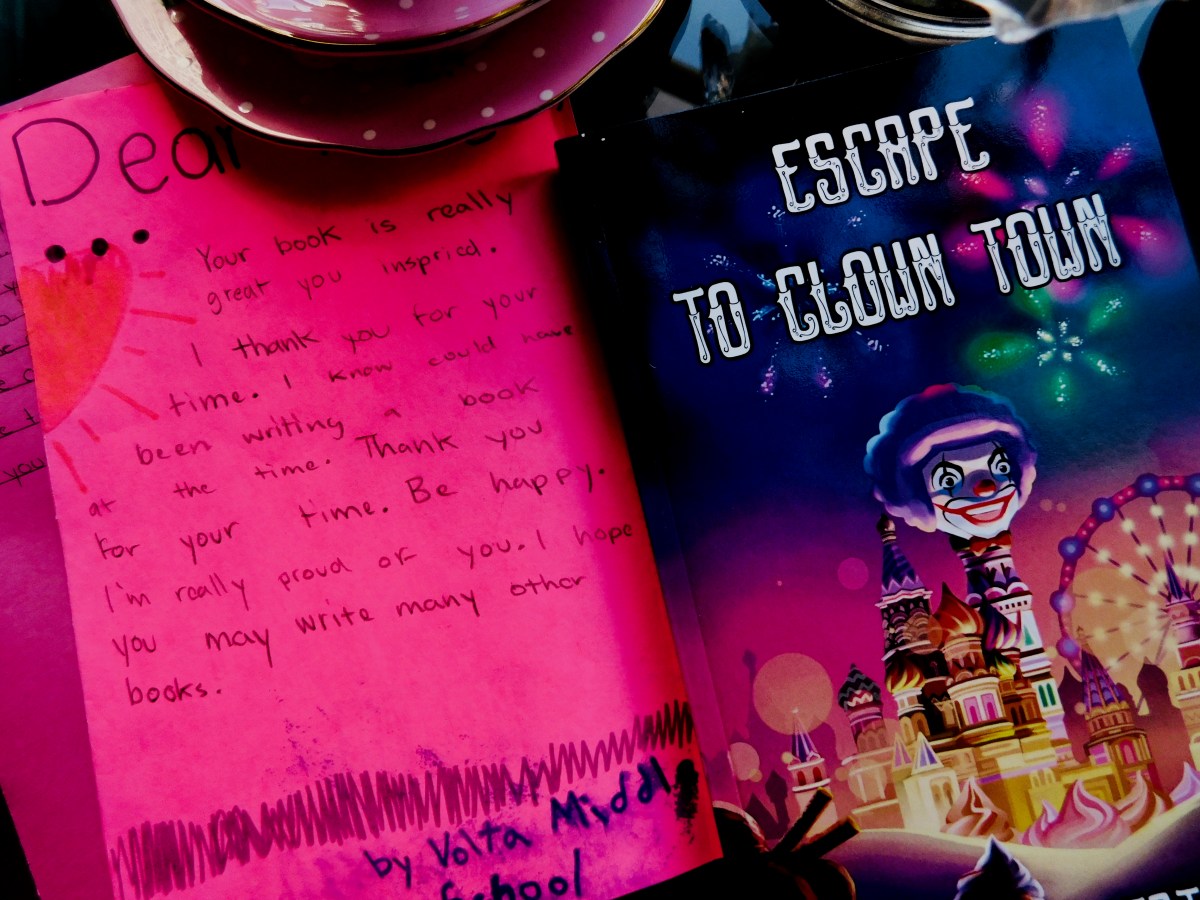 Dear
Your book is really
great you inspried.
I thank you for your
time. I know could have
been writing a book
at the time. Thank you
for your time. Be happy.
I'm really proud of you. I hope
you may write many other
books.
by Volta Middl
School
ESCAPE
TO CLOWN TOWN